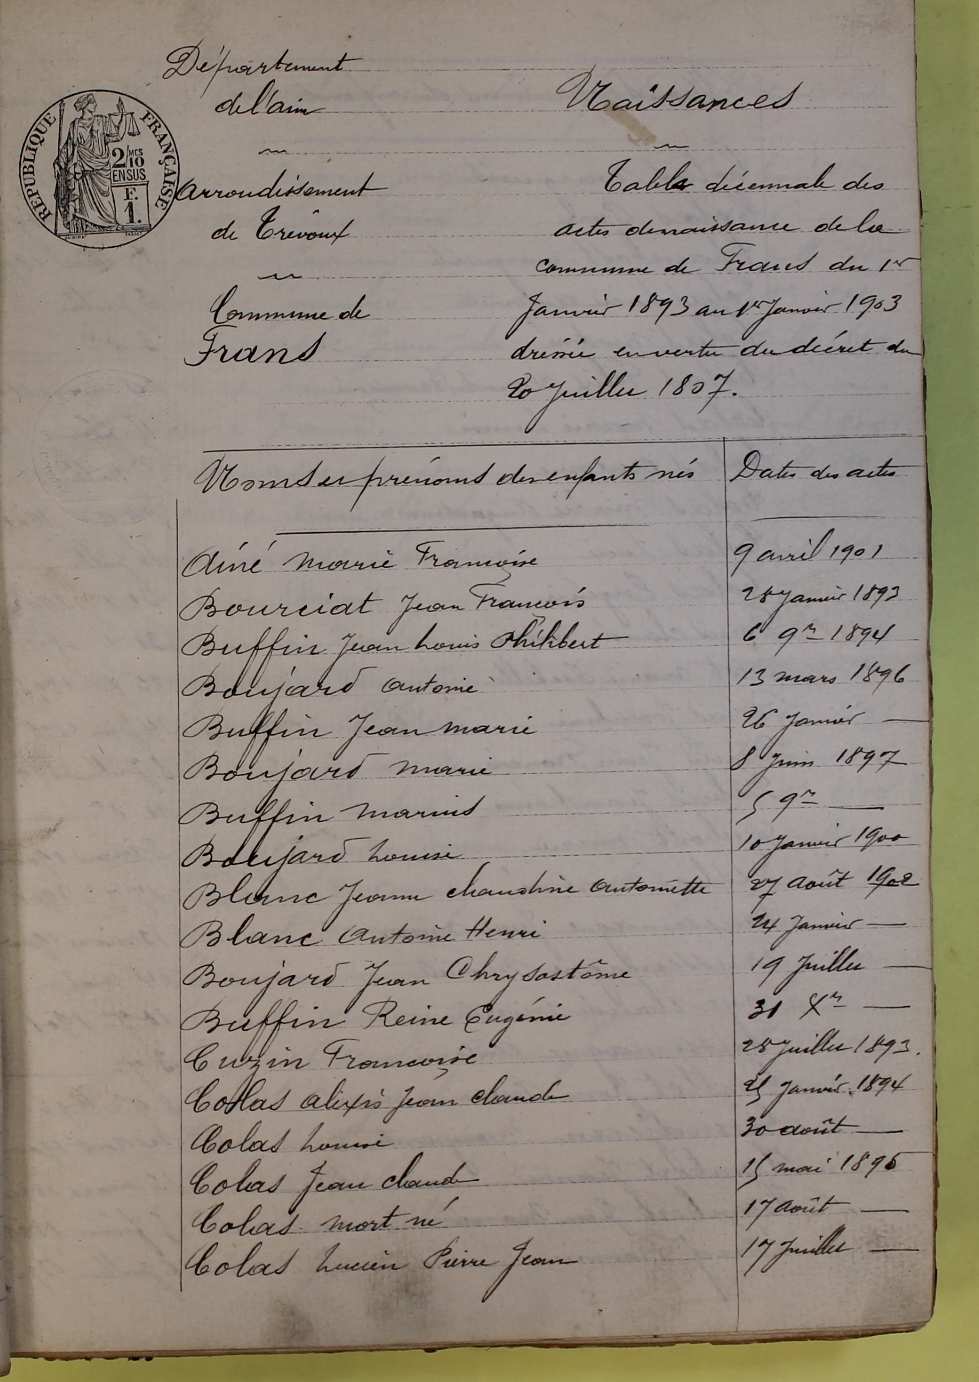 Département
de l'ain
arrondissement
de Trévoux
Commune de
Frans
RÉPUBLIQUE FRANÇAISE
2/10
EN SUS
F.
1.
Naissances
Table décennale des
actes de naissance de la
commune de Frans du 1er
Janvier 1893 au 1er Janvier 1903
dressée en vertu du décret du
20 Juillet 1807.
Noms et prénoms des enfants nés Dates des actes
Ainé Marie Françoise 9 avril 1901
Bourciat Jean François 28 Janvier 1893
Buffin Jean Louis Philibert 6 9re 1894
Boujard Antoine 13 mars 1896
Buffin Jean Marie 26 Janvier —
Boujard Marie 8 Juin 1897
Buffin Marius 5 9re —
Boujard Louise 10 Janvier 1900
Blanc Jeanne Claudine Antoinette 27 Août 1902
Blanc Antoine Henri 24 Janvier —
Boujard Jean Chrysostôme 19 Juillet —
Buffin Reine Eugénie 31 Xre —
Cuzin Françoise 28 Juillet 1893.
Colas alexis Jean Claude 25 Janvier 1894
Colas Louise 30 août —
Colas Jean Claude 15 mai 1896
Colas mort né 17 Août —
Colas Lucien Pierre Jean 17 Juillet —